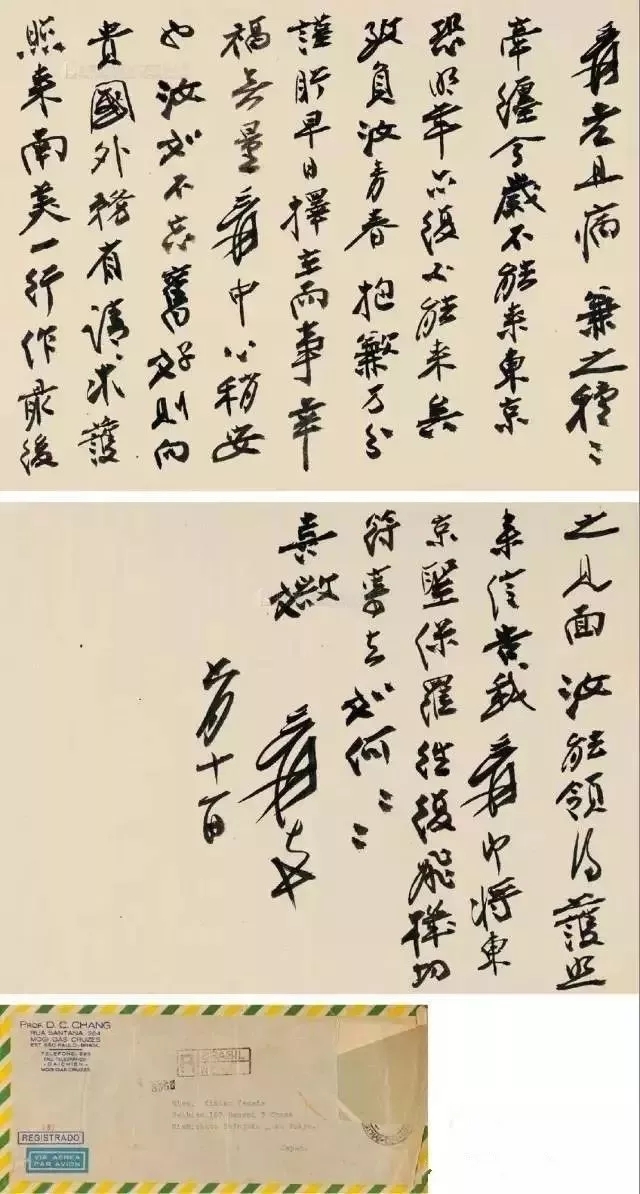 爰老且病 兼之種〻
牽纏今歲不能来東京
恐明年亦復不能来矣
致負汝青春 抱歉万分
謹盼早日擇主而事 幸
福无量 爰中心稍安
也 汝如不忘舊好則向
貴國外務省請求護
照来南美一行作最後
之見面 汝能領得護照
来信告我 爰即將東
京聖保羅往復飛機切
符寄上如何〻〻
喜媺
爰
月十日
PROF. D. C. CHANG
RUA SANTANA, 364
MOGI DAS CRUZES
EST. SÃO PAULO-BRASIL
TELEFONE: 693
END. TELEGRÁFICO
-DAICHIEN-
MOGI DAS CRUZES
R BRASIL
REGISTRADO
VIA AEREA
PAR AVION
Japan.